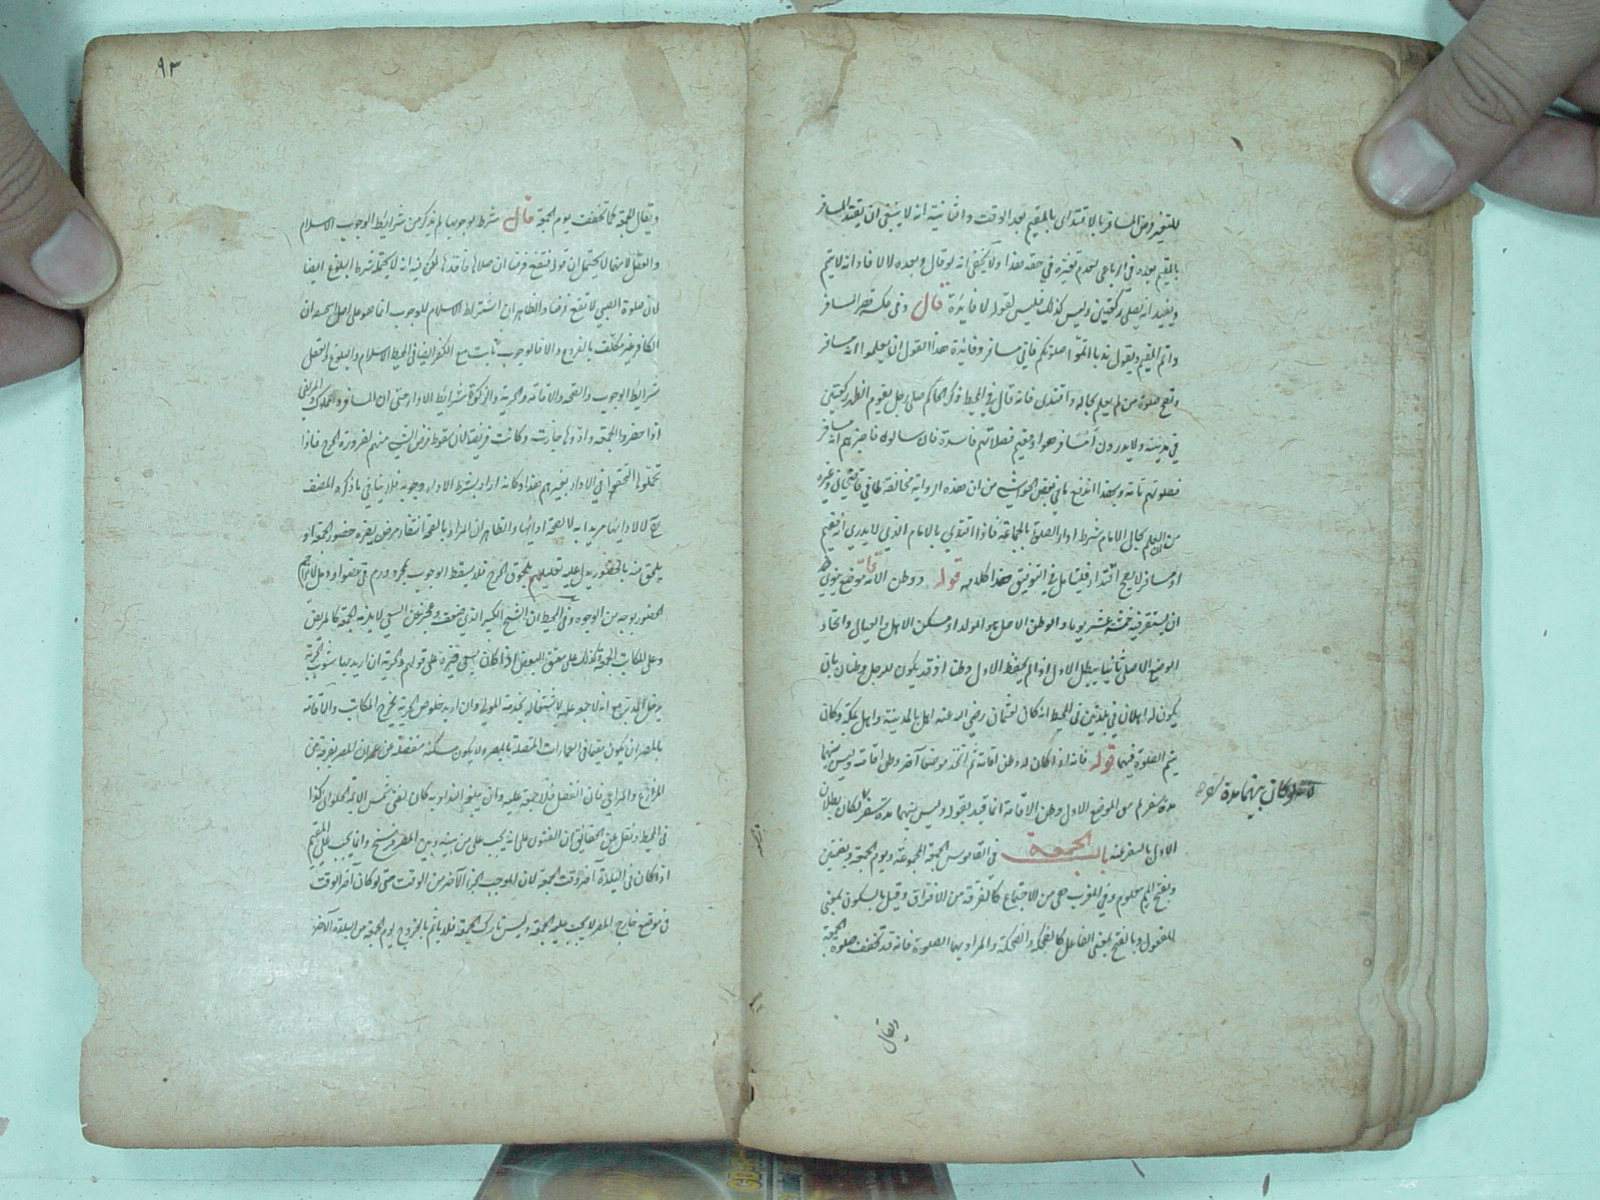 للتغير فرض المسافر بالاقتداى بالمقيم بعد الوقت والثانية انه لا ينبغى ان يقتدى المسافر
بالمقيم بعده فى الرباعى لعدم تغيره فى حقه هذا ولا يخفى انه لو قال وبعده لا لا فاد انه لا يتم
ويفيد انه يصلى ركعتين وليس كذلك فليس لقوله لا فائدة قال وفى عكسه قصر المسافر
واتم المقيم ويقول ندبا اتموا صلوتكم فانى مسافر وفائدة هذا القول ان يعلموا انه مسافر
وتصح صلوة من لم يعلم بحاله واقتدى فانه قال فى المحيط ذكر الحاكم صلى رجل بقوم الظهر ركعتين
فى مدينة ولا يدرون أمسافر هو او مقيم فصلاتهم فاسدة فان سالوه فاخبرهم انه مسافر
فصلوتهم تامة وبهذا اندفع ما فى بعض الحواشى من ان هذه الرواية مخالفة لما فى قاضيخان وغيره
من ان العلم بحال الامام شرط اداء الصلوة بالجماعة فاذا اقتدى بالامام الذى لا يدرى أمقيم
او مسافر لا يصح اقتداؤه فليتامل فى التوفيق هذا كلامه قوله ووطن الاقامة موضع ينوى فيه
ان يستقر فيه خمسة عشر يوما والوطن الاصلى هو المولد او مسكن الاهل والعيال واتحاد
الموضع الاصلى ثانيا يبطل الاول اذا لم يحفظ الاول وطنا اذ قد يكون للرجل وطنان بان
يكون له اهلان فى بلدتين فى المحيط انه كان لعثمان رضى الله عنه اهل بالمدينة واهل بمكة وكان
يتم الصلوة فيهما قوله فانه اذا كان له وطن اقامة ثم اتخذ موضعا آخر وطن اقامة وليس بينهما
مدة سفر لم يبق الموضع الاول وطن الاقامة انما قيد بقوله وليس بينهما مدة سفر لكان بطلان
الاول بالسفر عنه باب الجمعة فى القاموس الجمعة المجموعة ويوم الجمعة وبضمتين
وبفتح الميم معلوم وفى المغرب هى من الاجتماع كالفرقة من الافتراق وقيل بالسكون بمعنى
المفعول وبالفتح بمعنى الفاعل كالضحكة والضحكة والمراد بها الصلوة فانه قد تخفف صلوة الجمعة
ويقال
لانه لو كان بينهما مدة سفر
٩٣
ويقال الجمعة كما تخفف يوم الجمعة قال شرط لوجوبها لم يذكر من شرائط الوجوب الاسلام
والعقل لانهما لا يحتمل ان قوله فتقع فرضا ان صلاها فاقدها لكن فيه انه لا يحتمله شرط البلوغ ايضا
لان صلوة الصبى لا تقع فرضا والظاهر ان اشتراط الاسلام للوجوب انما هو على اصل من يجعل ان
الكافر غير مكلف بالفروع والا فالوجوب ثابت مع الكفر ايضا فى المحيط الاسلام والبلوغ والعقل
شرائط الوجوب والصحة والاقامة والحرية والذكورة شرائط الاداء حتى ان المسافر والمملوك والمريض
اذا حضروا الجمعة وادوها جازت وكانت فريضة لان سقوط فرض السعى عنهم لضرورة الحرج فاذا
تحملوا التحقوا فى الاداء بغيرهم هذا وكانه اراد بشرط الاداء وجوبه فلا ينافى ما ذكره المصنف
انه لا لادائها مريدا به لا لصحة ادائها والظاهر ان المراد بالصحة انتفاء مرض يضره حضور الجمعة او
يلحق منه بالحضور يدل عليه تعليلهم بلحوق الحرج فلا يسقط الوجوب بمجرد ورم فى عضو او دمل لا يزاحم
الحضور بوجه من الوجوه وفى المحيط ان الشيخ الكبير الذى ضعف وعجز عن السعى لا يلزمه الجمعة كالمريض
وعلى المكاتب الجمعة وكذلك على معتق البعض اذا كان يسعى
يدخل المدبر مع انه لا جمعة عليه لاشتغاله بخدمة المولى وان اريد خلوص الحرية يخرج المكاتب والاقامة
بالمصر ان يكون مقيما فى العمارات المتصلة بالمصر ولا يكون مسكنه منفصلة عن عمران المصر بفرجة من
المزارع والمراعى فان انفصل فلا جمعة عليه وان يبلغه النداء وبه كان يفتى شمس الائمة الحلوانى كذا
فى المحيط ونقل عن الحقائق ان الفتوى على انه يجب على من بينه وبين المصر فرسخ وانما يجب على المقيم
اذا كان فى البلدة آخر وقت الجمعة لان الموجب الجزء الآخر من الوقت حتى لو كان آخر الوقت
فى موضع خارج المصر لا يجب عليه الجمعة وليس تارك الجمعة فلا ياثم بالخروج يوم الجمعة من البلدة الآخر